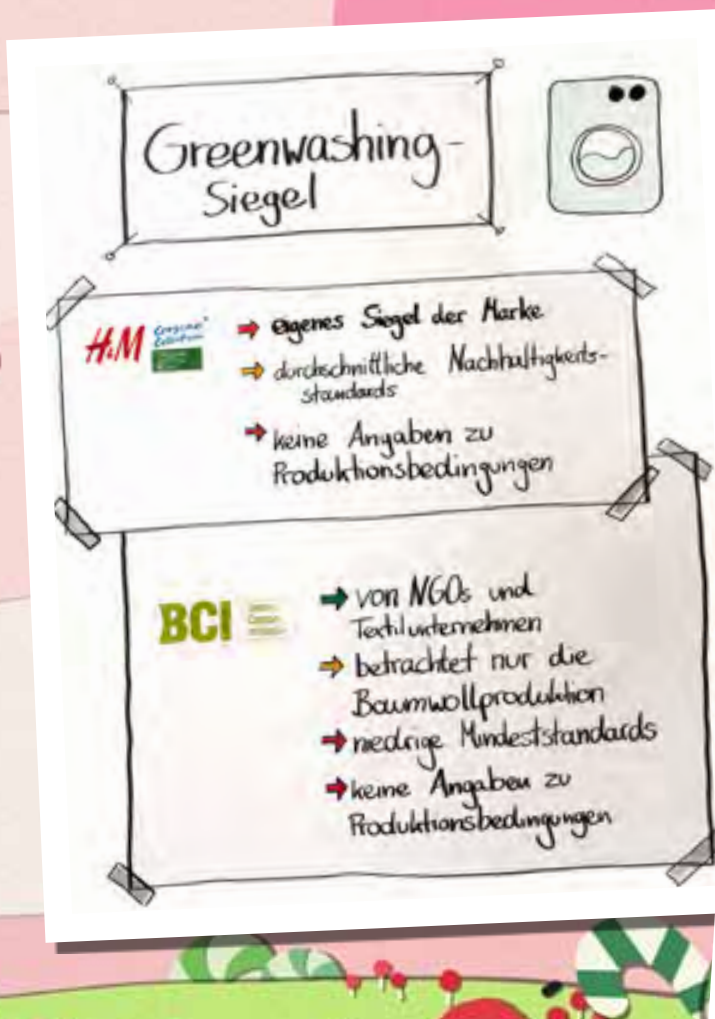 Greenwashing-
Siegel
H&M Conscious
Collection
eigenes Siegel der Marke
durchschnittliche Nachhaltigkeits-
standards
keine Angaben zu
Produktionsbedingungen
BCI
von NGOs und
Textilunternehmen
betrachtet nur die
Baumwollproduktion
niedrige Mindeststandards
keine Angaben zu
Produktionsbedingungen